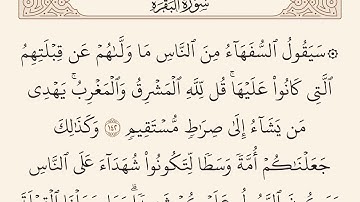 سُورَةُ البَقَرَةِ
۞ سَيَقُولُ ٱلسُّفَهَآءُ مِنَ ٱلنَّاسِ مَا وَلَّىٰهُمْ عَن قِبْلَتِهِمُ
ٱلَّتِى كَانُوا۟ عَلَيْهَا ۚ قُل لِّلَّهِ ٱلْمَشْرِقُ وَٱلْمَغْرِبُ ۚ يَهْدِى
مَن يَشَآءُ إِلَىٰ صِرَٰطٍ مُّسْتَقِيمٍ ١٤٢ وَكَذَٰلِكَ
جَعَلْنَٰكُمْ أُمَّةً وَسَطًا لِّتَكُونُوا۟ شُهَدَآءَ عَلَى ٱلنَّاسِ